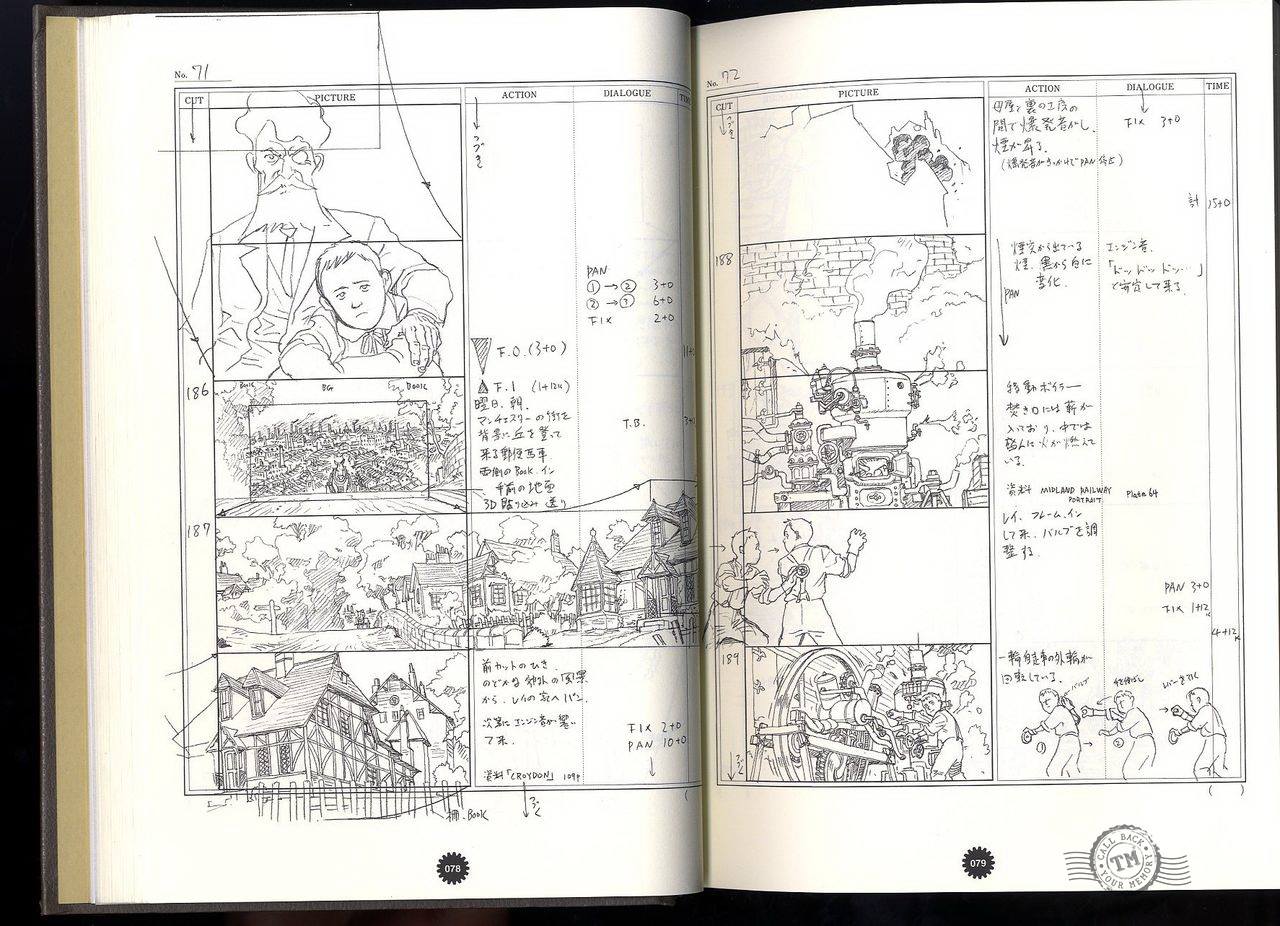 No. 71
CUT
PICTURE
ACTION
DIALOGUE
つづき
PAN
① → ② 3+0
② → ③ 6+0
FIX 2+0
F.O (3+0)
186
BOOK
BG
BOOK
F.I (1+12K)
曜日、朝。
マンチェスターの街を
背景に丘を登って
来る郵便馬車
両側のBOOK イン
手前の地面
3D 貼り込み 送り
T.B.
187
前カットのひき
のどかな郊外の風景
から、レイの家へパン。
次第にエンジン音が響い
て来る。
FIX 2+0
PAN 10+0
資料「CROYDON」
つづく
柵.BOOK
078
No. 72
CUT
PICTURE
ACTION
DIALOGUE
TIME
つづき
母屋と裏の工房の
間で爆発音がし、
煙が昇る。
FIX 3+0
計 15+0
188
PAN
煙突から出ている
煙、黒から白に
変化。
エンジン音。
「ドッ ドッ ドッ…」
と安定して来る。
移動ボイラー
焚き口には薪が
入っており、中では
に火が燃えて
いる。
資料 MIDLAND RAILWAY
PORTRAIT Plate 64
レイ、フレーム.イン
して来、バルブを調
整する。
PAN 3+0
FIX 1+12K
4+12K
189
一輪自走車の外輪が
回転している。
バルブ
①
②
つづく
079
CALL BACK
TM
YOUR MEMORY